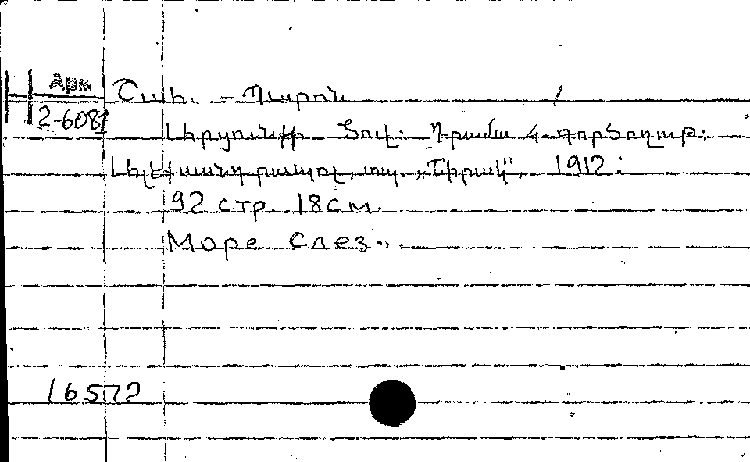 Арм
2-6081
Շահ. - Պարոն
Ծով: Դրամա 4 գործողութ:
Ալեքսանդրապոլ, տպ. „Շիրակ“, 1912:
92 стр. 18 см
Море слез.